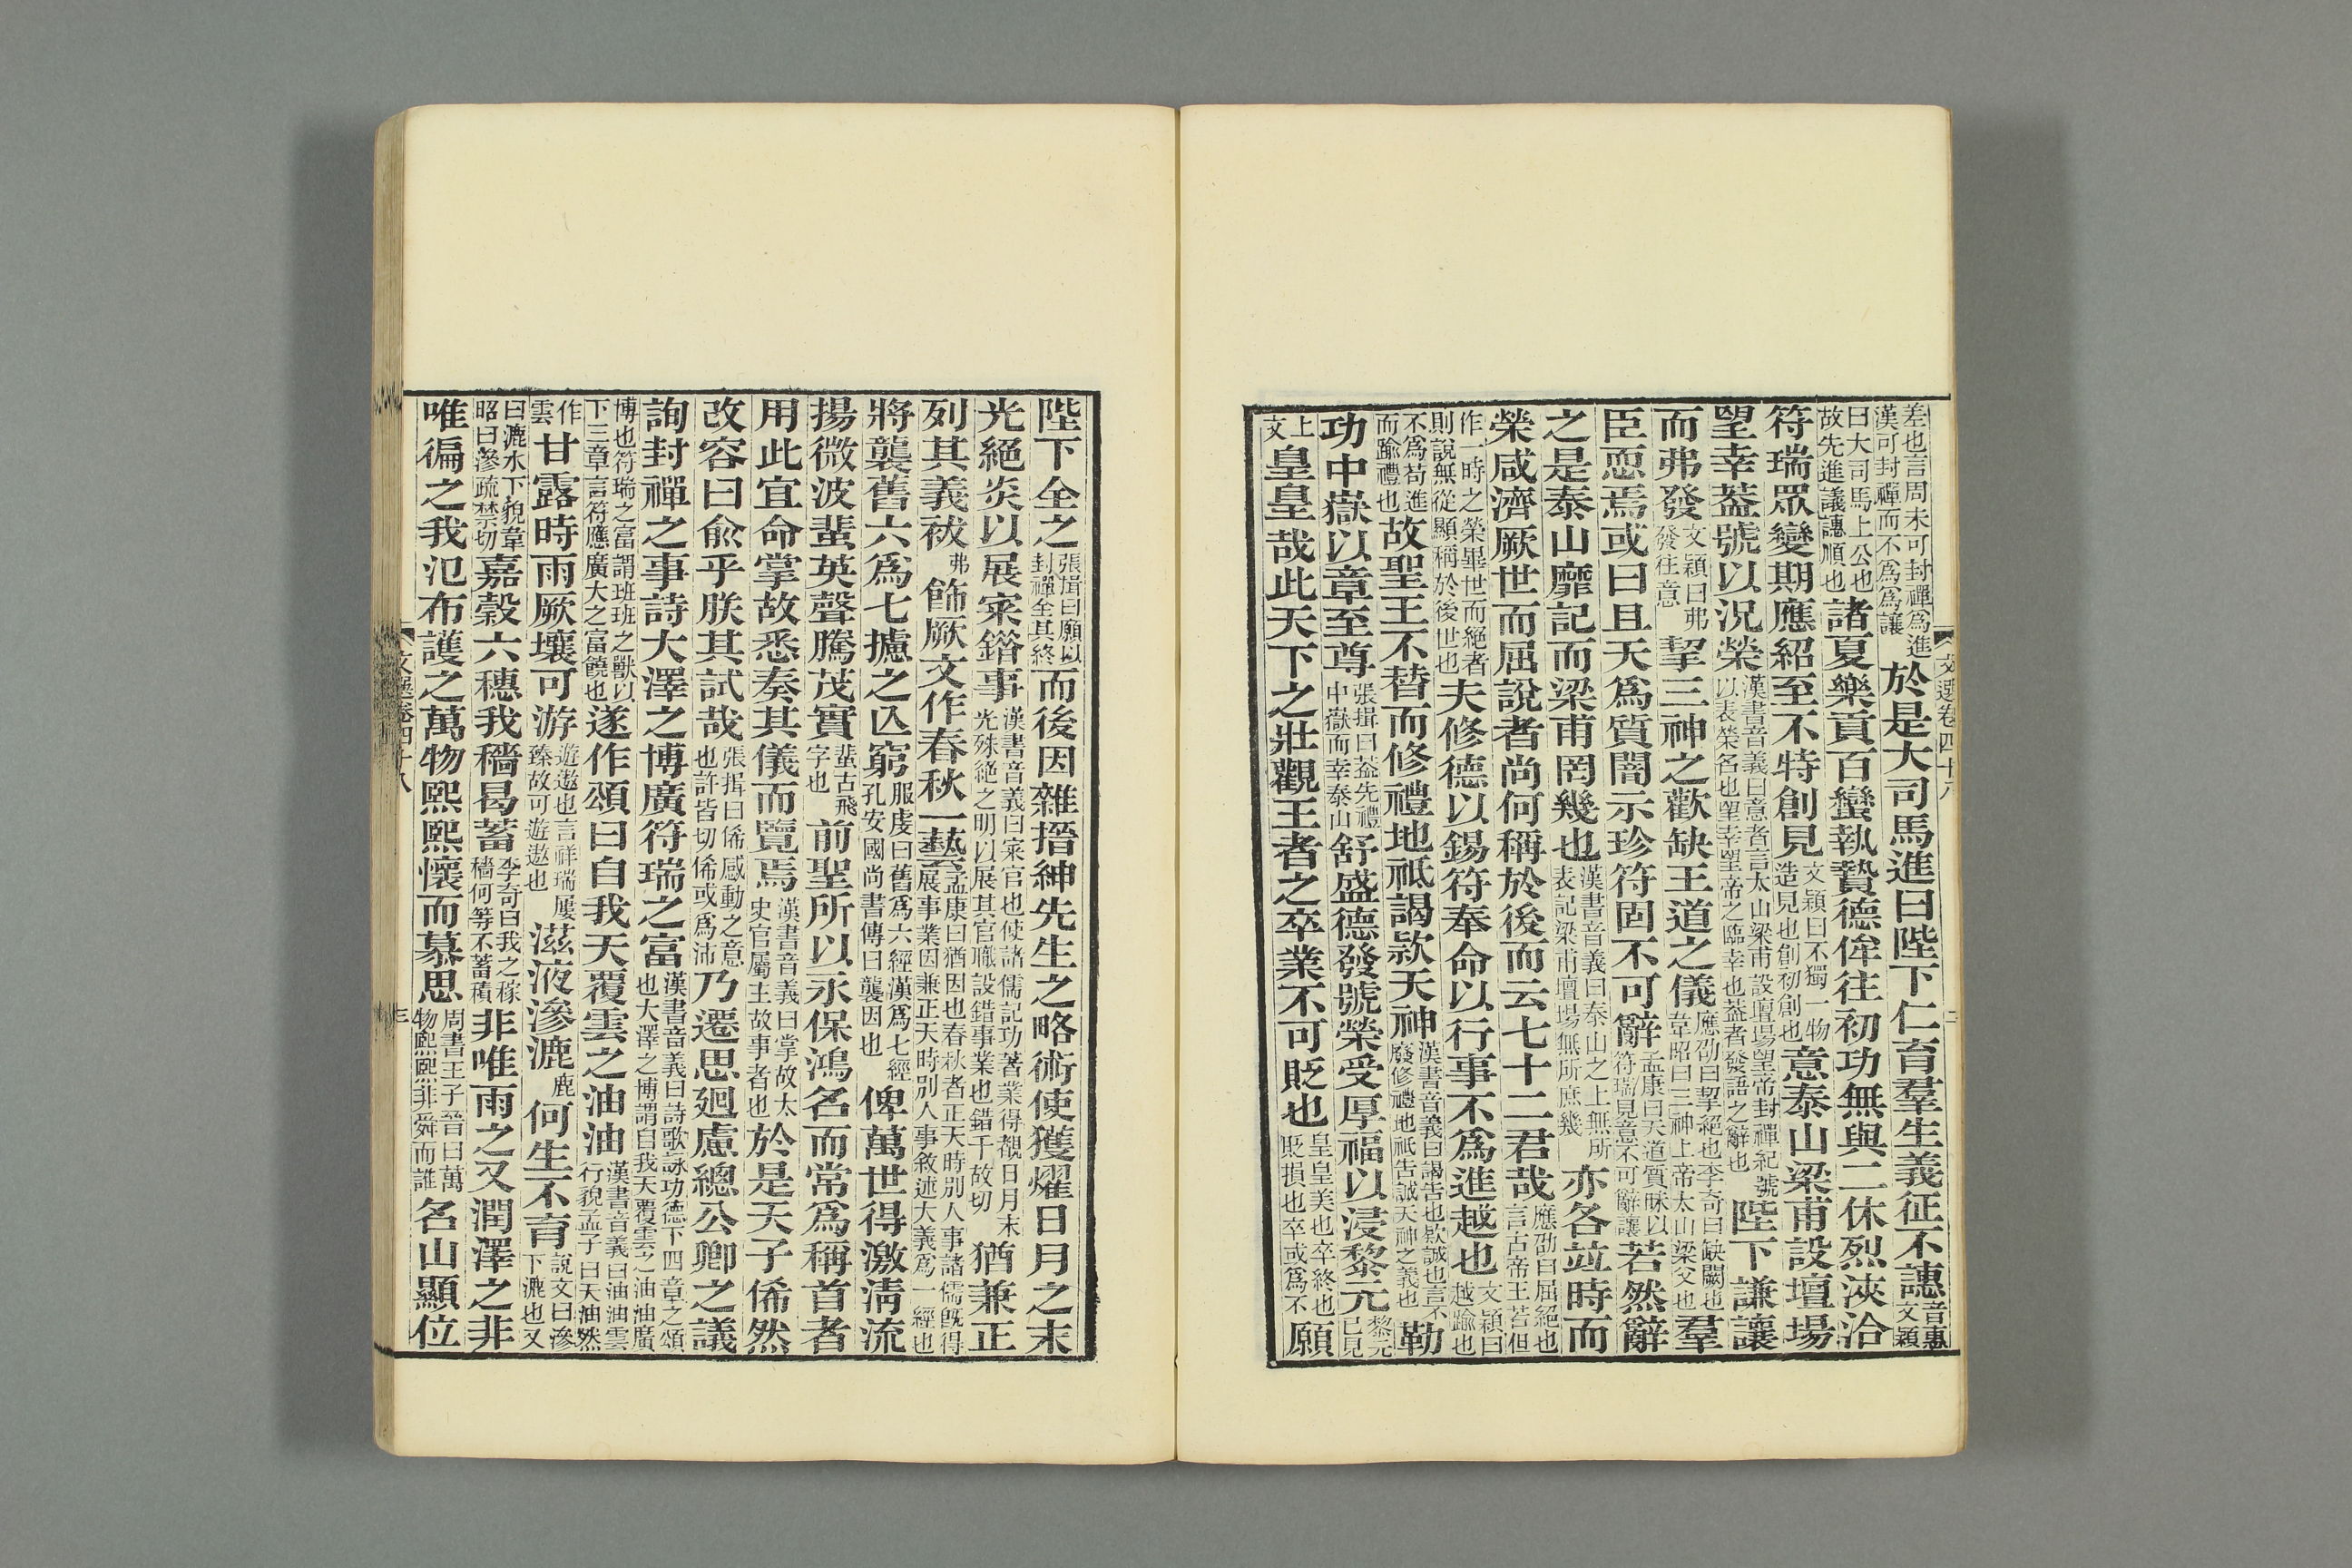 差也言周未可封禪爲進漢可封禪而不爲爲讓於是大司馬進曰陛下仁育羣生義征不譓音惠文穎
曰大司馬上公也故先進議譓順也諸夏樂貢百蠻執贄德侔往初功無與二休烈浹洽
符瑞眾變期應紹至不特創見文穎曰不獨一物造見也創初創也意泰山梁甫設壇場
望幸葢號以況榮漢書音義曰意者言太山梁甫設壇場望帝封禪紀號以表榮名也望幸望帝之臨幸也葢者發語之辭也陛下謙讓
而弗發文穎曰弗發往意挈三神之歡缺王道之儀應劭曰挈絕也李奇曰缺闕也韋昭曰三神上帝太山梁父也羣
臣恧焉或曰且天爲質闇示珍符固不可辭孟康曰天道質昧以符瑞見意不可辭讓若然辭
之是泰山靡記而梁甫罔幾也漢書音義曰泰山之上無所表記梁甫壇場無所庶幾亦各竝時而
榮咸濟厥世而屈說者尚何稱於後而云七十二君哉應劭曰屈絕也言古帝王若但
作一時之榮畢世而絕者則說無從顯稱於後世也夫修德以錫符奉命以行事不爲進越也文穎曰越踰也
不爲苟進而踰禮也故聖王不替而修禮地祗謁欵天神漢書音義曰謁告也欵誠也言不廢修禮地祇告誠天神之義也勒
功中嶽以章至尊張揖曰葢先禮中嶽而幸泰山舒盛德發號榮受厚福以浸黎元黎元已見
上文皇皇哉此天下之壯觀王者之卒業不可貶也皇皇美也卒終也貶損也卒或爲不願
文選卷四十八
二
陛下全之張揖曰願以封禪全其終而後因雜搢紳先生之略術使獲燿日月之末
光絕炎以展寀錯事漢書音義曰寀官也使諸儒記功著業得覩日月末光殊絕之明以展其官職設錯事業也錯千故切猶兼正
列其義祓弗飾厥文作春秋一藝孟康曰猶因也春秋者正天時別人事諸儒旣得展事業因兼正天時別人事敘述大義爲一經也
將襲舊六爲七攄之亾窮服虔曰舊爲六經漢爲七經孔安國尚書傳曰襲因也俾萬世得激淸流
揚微波蜚英聲騰茂實蜚古飛字也前聖所以永保鴻名而常爲稱首者
用此宜命掌故悉奏其儀而覽焉漢書音義曰掌故太史官屬主故事者也於是天子俙然
改容曰兪乎朕其試哉張揖曰俙感動之意也許皆切俙或爲沛乃遷思廻慮總公卿之議
詢封禪之事詩大澤之博廣符瑞之富漢書音義曰詩歌詠功德下四章之頌也大澤之博謂自我天覆雲之油油廣
博也符瑞之富謂班班之獸以下三章言符應廣大之富饒也遂作頌曰自我天覆雲之油油漢書音義曰油油雲行貌孟子曰天油然
作雲甘露時雨厥壤可游遊遨也言祥瑞屢臻故可遊遨也滋液滲漉鹿何生不育說文曰滲下漉也又
曰漉水下貌韋昭曰滲疏禁切嘉穀六穗我穡曷蓄李奇曰我之稼穡何等不蓄積非唯雨之又潤澤之非
唯徧之我氾布護之萬物熙熙懷而慕思周書王子晉曰萬物熙熙非舜而誰名山顯位
文選卷四十八
三